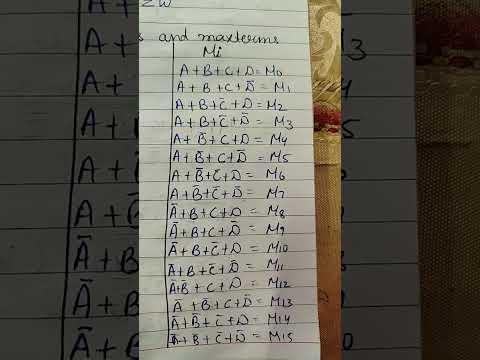 s and maxterms
Mi
A+B+C+D=M0
A+B+C+D̄=M1
A+B+C̄+D=M2
A+B+C̄+D̄=M3
A+B̄+C+D=M4
A+B̄+C+D̄=M5
A+B̄+C̄+D=M6
A+B̄+C̄+D̄=M7
Ā+B+C+D=M8
Ā+B+C+D̄=M9
Ā+B+C̄+D=M10
Ā+B+C̄+D̄=M11
Ā+B̄+C+D=M12
Ā+B̄+C+D̄=M13
Ā+B̄+C̄+D=M14
Ā+B̄+C̄+D̄=M15